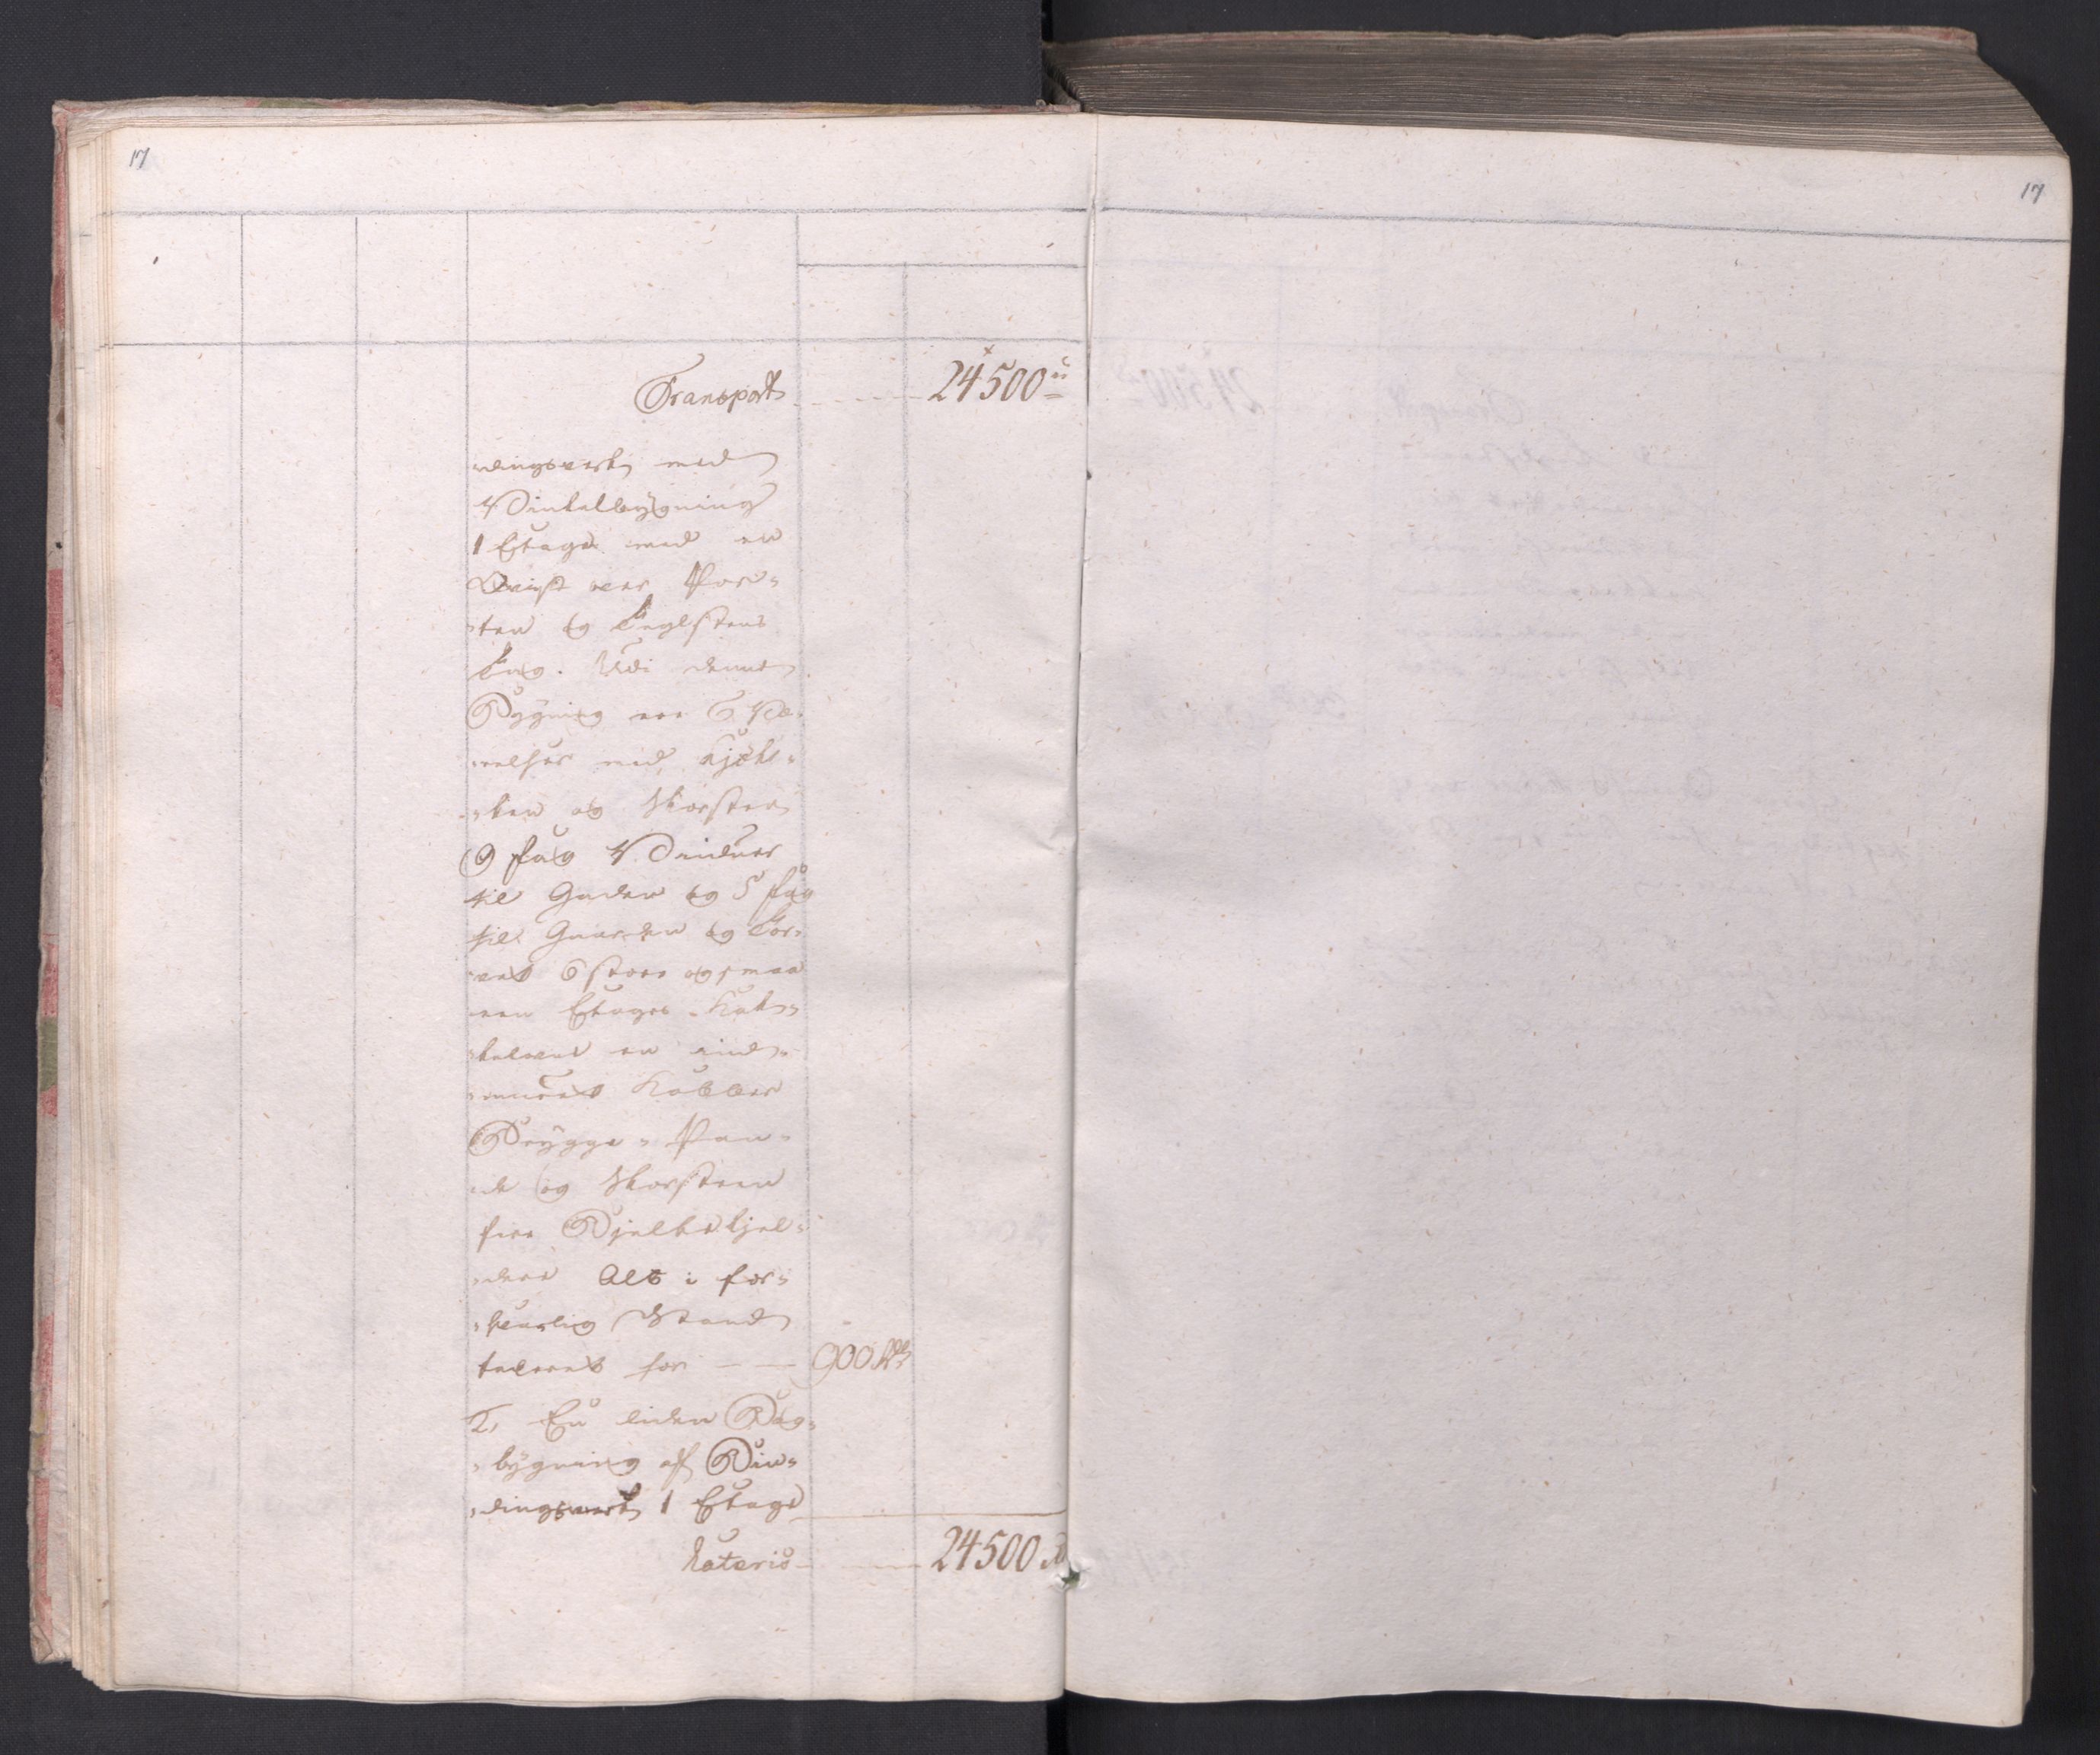 17
17
Transport 24500
dingsverk med
Vinkelbygning
1 Etage med en
Qvist over Por-
ten og Teglsteens
Tag. Udi denne
Bygning ere 6 Væ-
relser med Kjøk-
ken og Skorsteen
9 fag Vinduer
til Gaden og 5 fag
til Gaarden og Tor-
vet 6 store og smaa
een Etages Kak-
kelovne en ind-
muuret Kobber
Brygge-Pan-
de og Skorsteen
fire Bjelke kjel-
dere Alt i for-
svarlig Stand
taxeret for — — 900 Rdr
2, En liden Bag-
bygning af Bin-
dingsverk 1 Etage
Lateris 24500 R